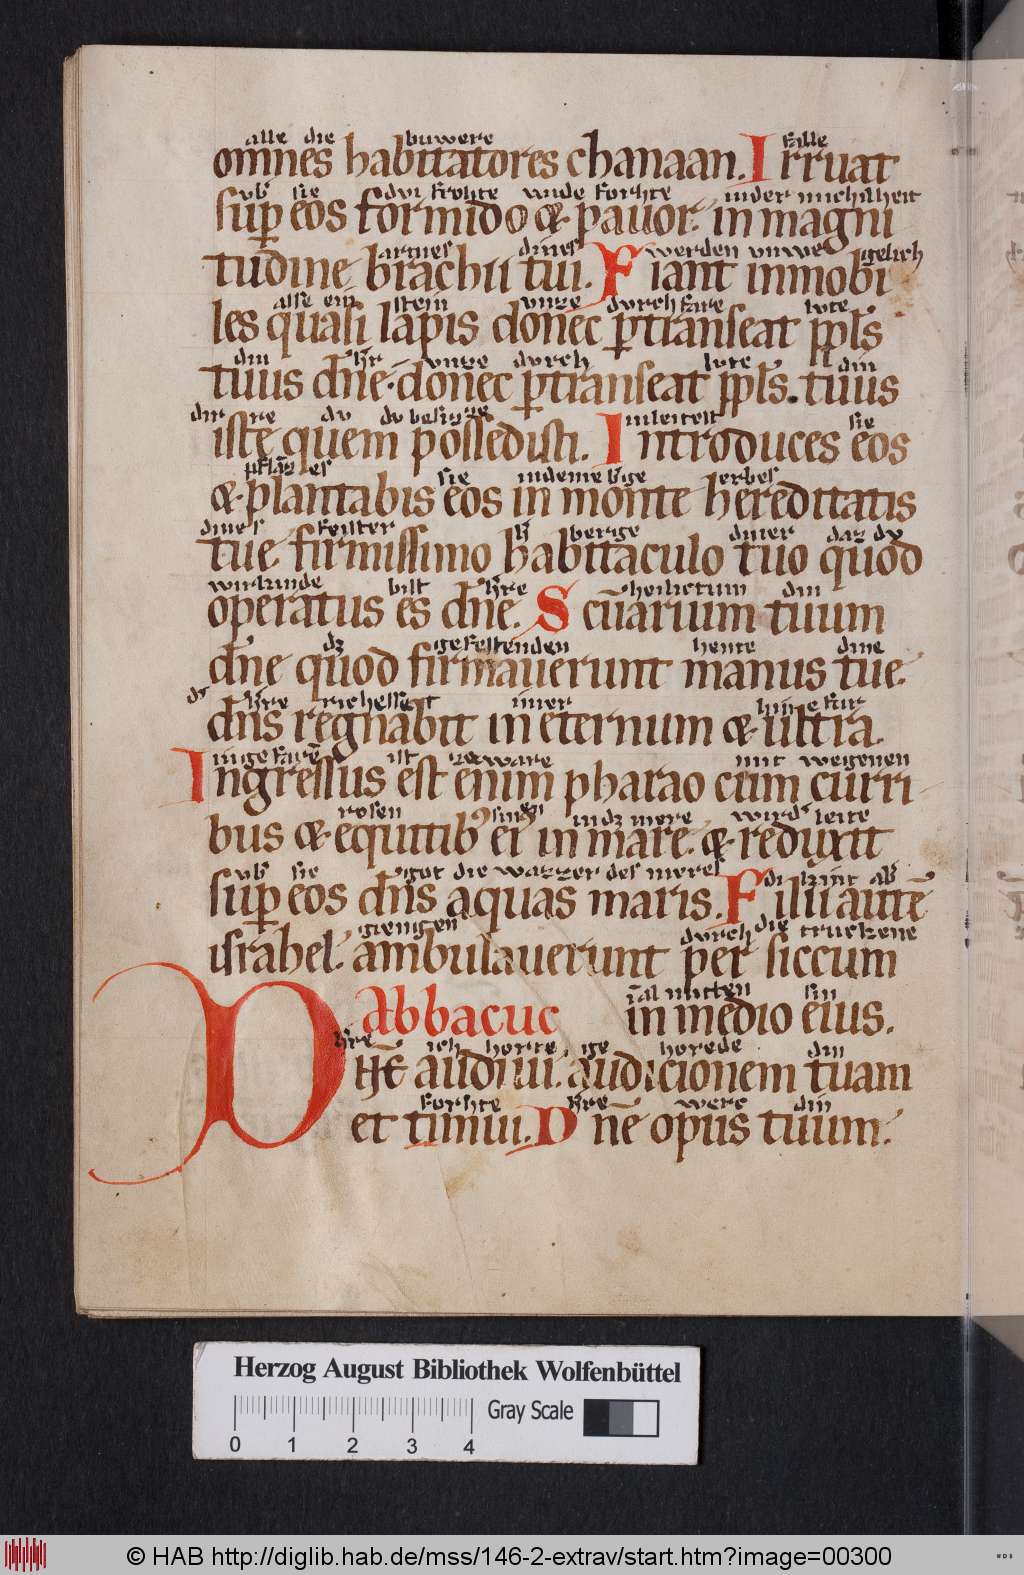 alle die buwere falle
omnes habitatores chanaan. Irruat
vb̄ sie div forhte vnde forhte inder michilheit
sup̄ eos formido & pauor. in magni
armes dines werden vnwe gelich
tudine brachii tui. Fiant inmobi
alse ein stein vnze dvrch fare lvte
les quasi lapis donec p̄transeat pp̄ls
din h̄r vnze dvrch lvte din
tuus dn̄e. donec p̄transeat pp̄ls. tuus
dv
iste quem possedisti. Introduces eos
inleitest sie
pflāzes sie indeme b̄ge erbes
& plantabis eos in monte hereditatis
dines fester h̄ berge diner daz dv
tue. firmissimo habitaculo tuo quod
wirkinde bist h̄re heilictum din
operatus es dn̄e. Scūarium tuum
dz gefestenden hente dine
dn̄e quod firmauerunt manus tue.
h̄re richesset imer
dn̄s regnabit in eternum & ultra.
ist mit wegenen
Ingressus est enim pharao cum curri
rosen indz mere leite
bus & equitib9 ei9 in mare. & reduxit
vb̄ sie got die wazzer des meres
sup̄ eos dn̄s aquas maris. Filii autē
giengen dvrch die truckene
israhel. ambulauerunt per siccum
mitten sin
Abbacuc in medio eius.
h̄re ich horte, ge horede din
DN̄E audiui. audicionem tuam
forhte h̄re werc din
et timui. Dnē opus tuum.
Herzog August Bibliothek Wolfenbüttel
Gray Scale
0 1 2 3 4
© HAB http://diglib.hab.de/mss/146-2-extrav/start.htm?image=00300